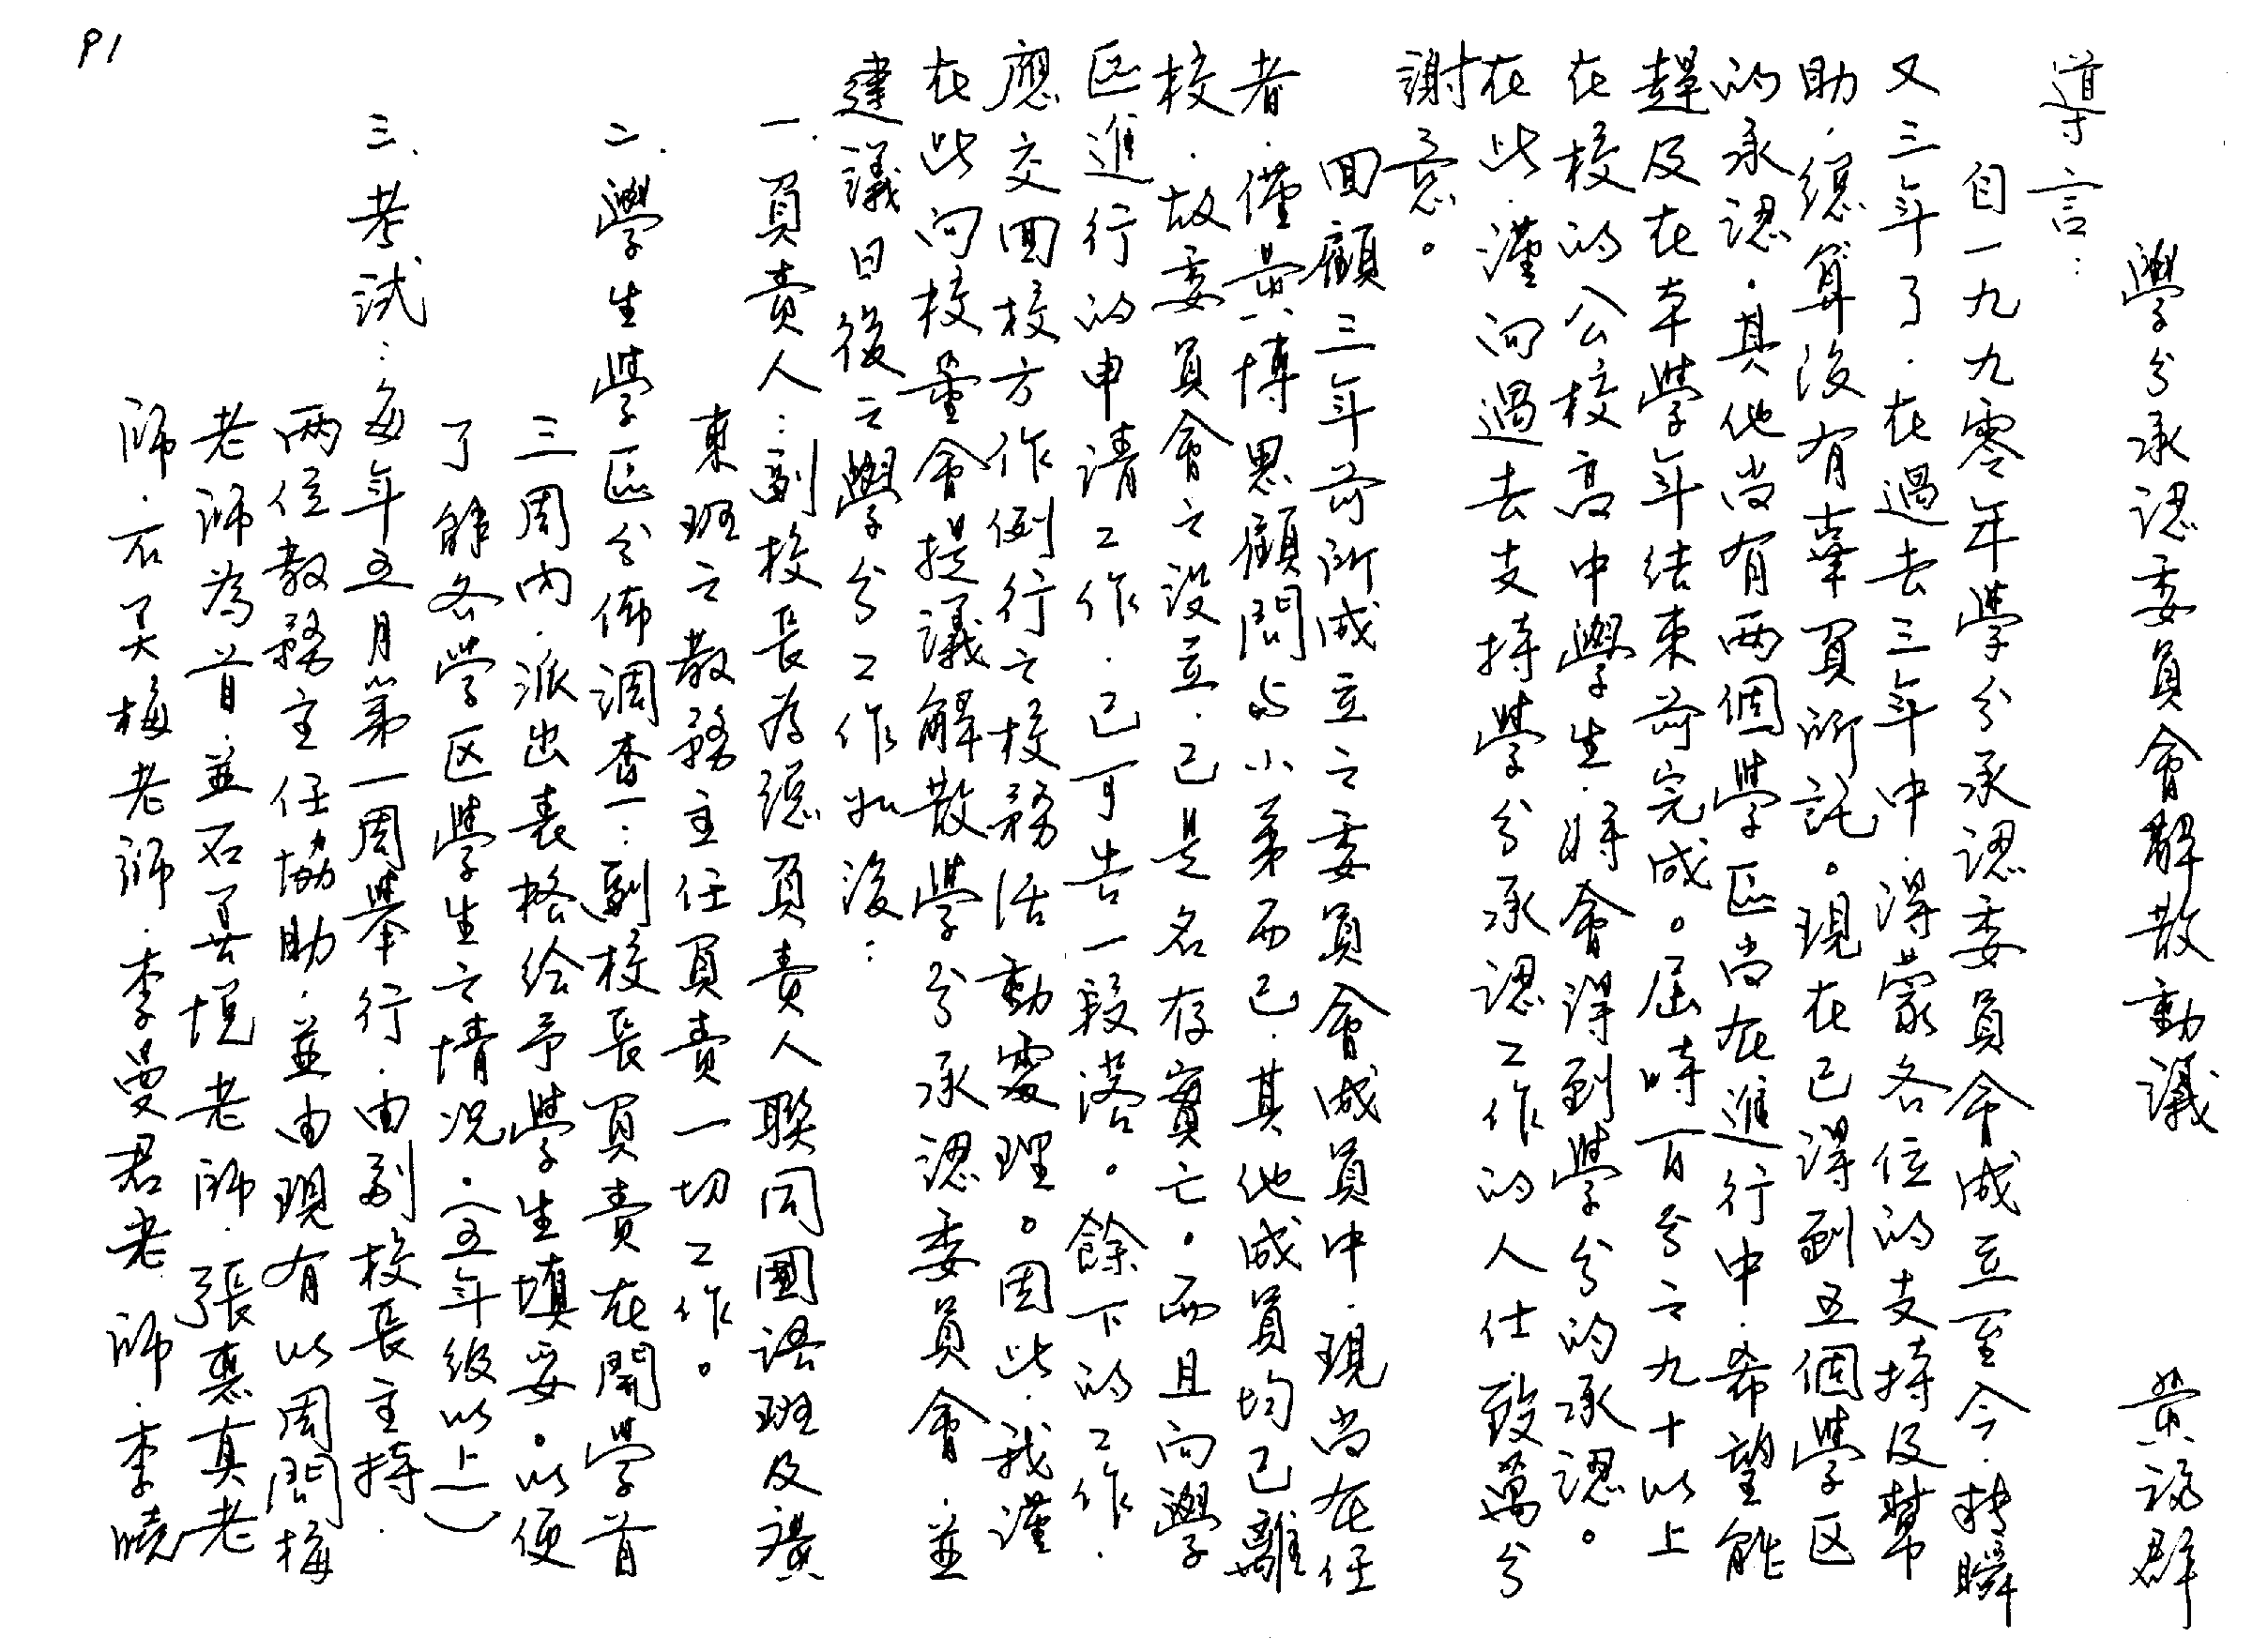 學分承認委員會解散動議 黃群
導言：
自一九九零年学分承認委員會成立至今．轉瞬
又三年了．在過去三年中．得蒙各位的支持及幫
助．總算沒有辜負所託。現在已得到五個學区
的承認．其他尚有兩個學區尚在進行中．希望能
趕及在本學年結束前完成。屆時百分之九十以上
在校的公校高中學生．將會得到學分的承認。
在此．謹向過去支持學分承認工作的人仕致萬分
謝意。
回顧三年前所成立之委員會成員中．現尚在任
者．僅黃博思顧問与小弟而已．其他成員均已離
校．故委員會之設立．已是名存實亡。而且向學
区進行的申請工作．已可告一段落。餘下的工作．
應交回校方作例行之校務活動處理。因此．我謹
在此向校董會提議解散學分承認委員會．並
建議日後之學分工作如後：
一．負責人：副校長為總負責人聯同國語班及廣
東班之教務主任負責一切工作。
二．學生學區分佈調查：副校長負責在開学首
三周內．派出表格给予學生填妥。以便
了解各学区學生之情况．（五年级以上）
三．考試：每年五月第一周舉行．由副校長主持．
兩位教務主任協助．並由現有以周閨梅
老師為首．並石景境老師．張惠真老
師．石美梅老師．李曼君老師．李曉
P1